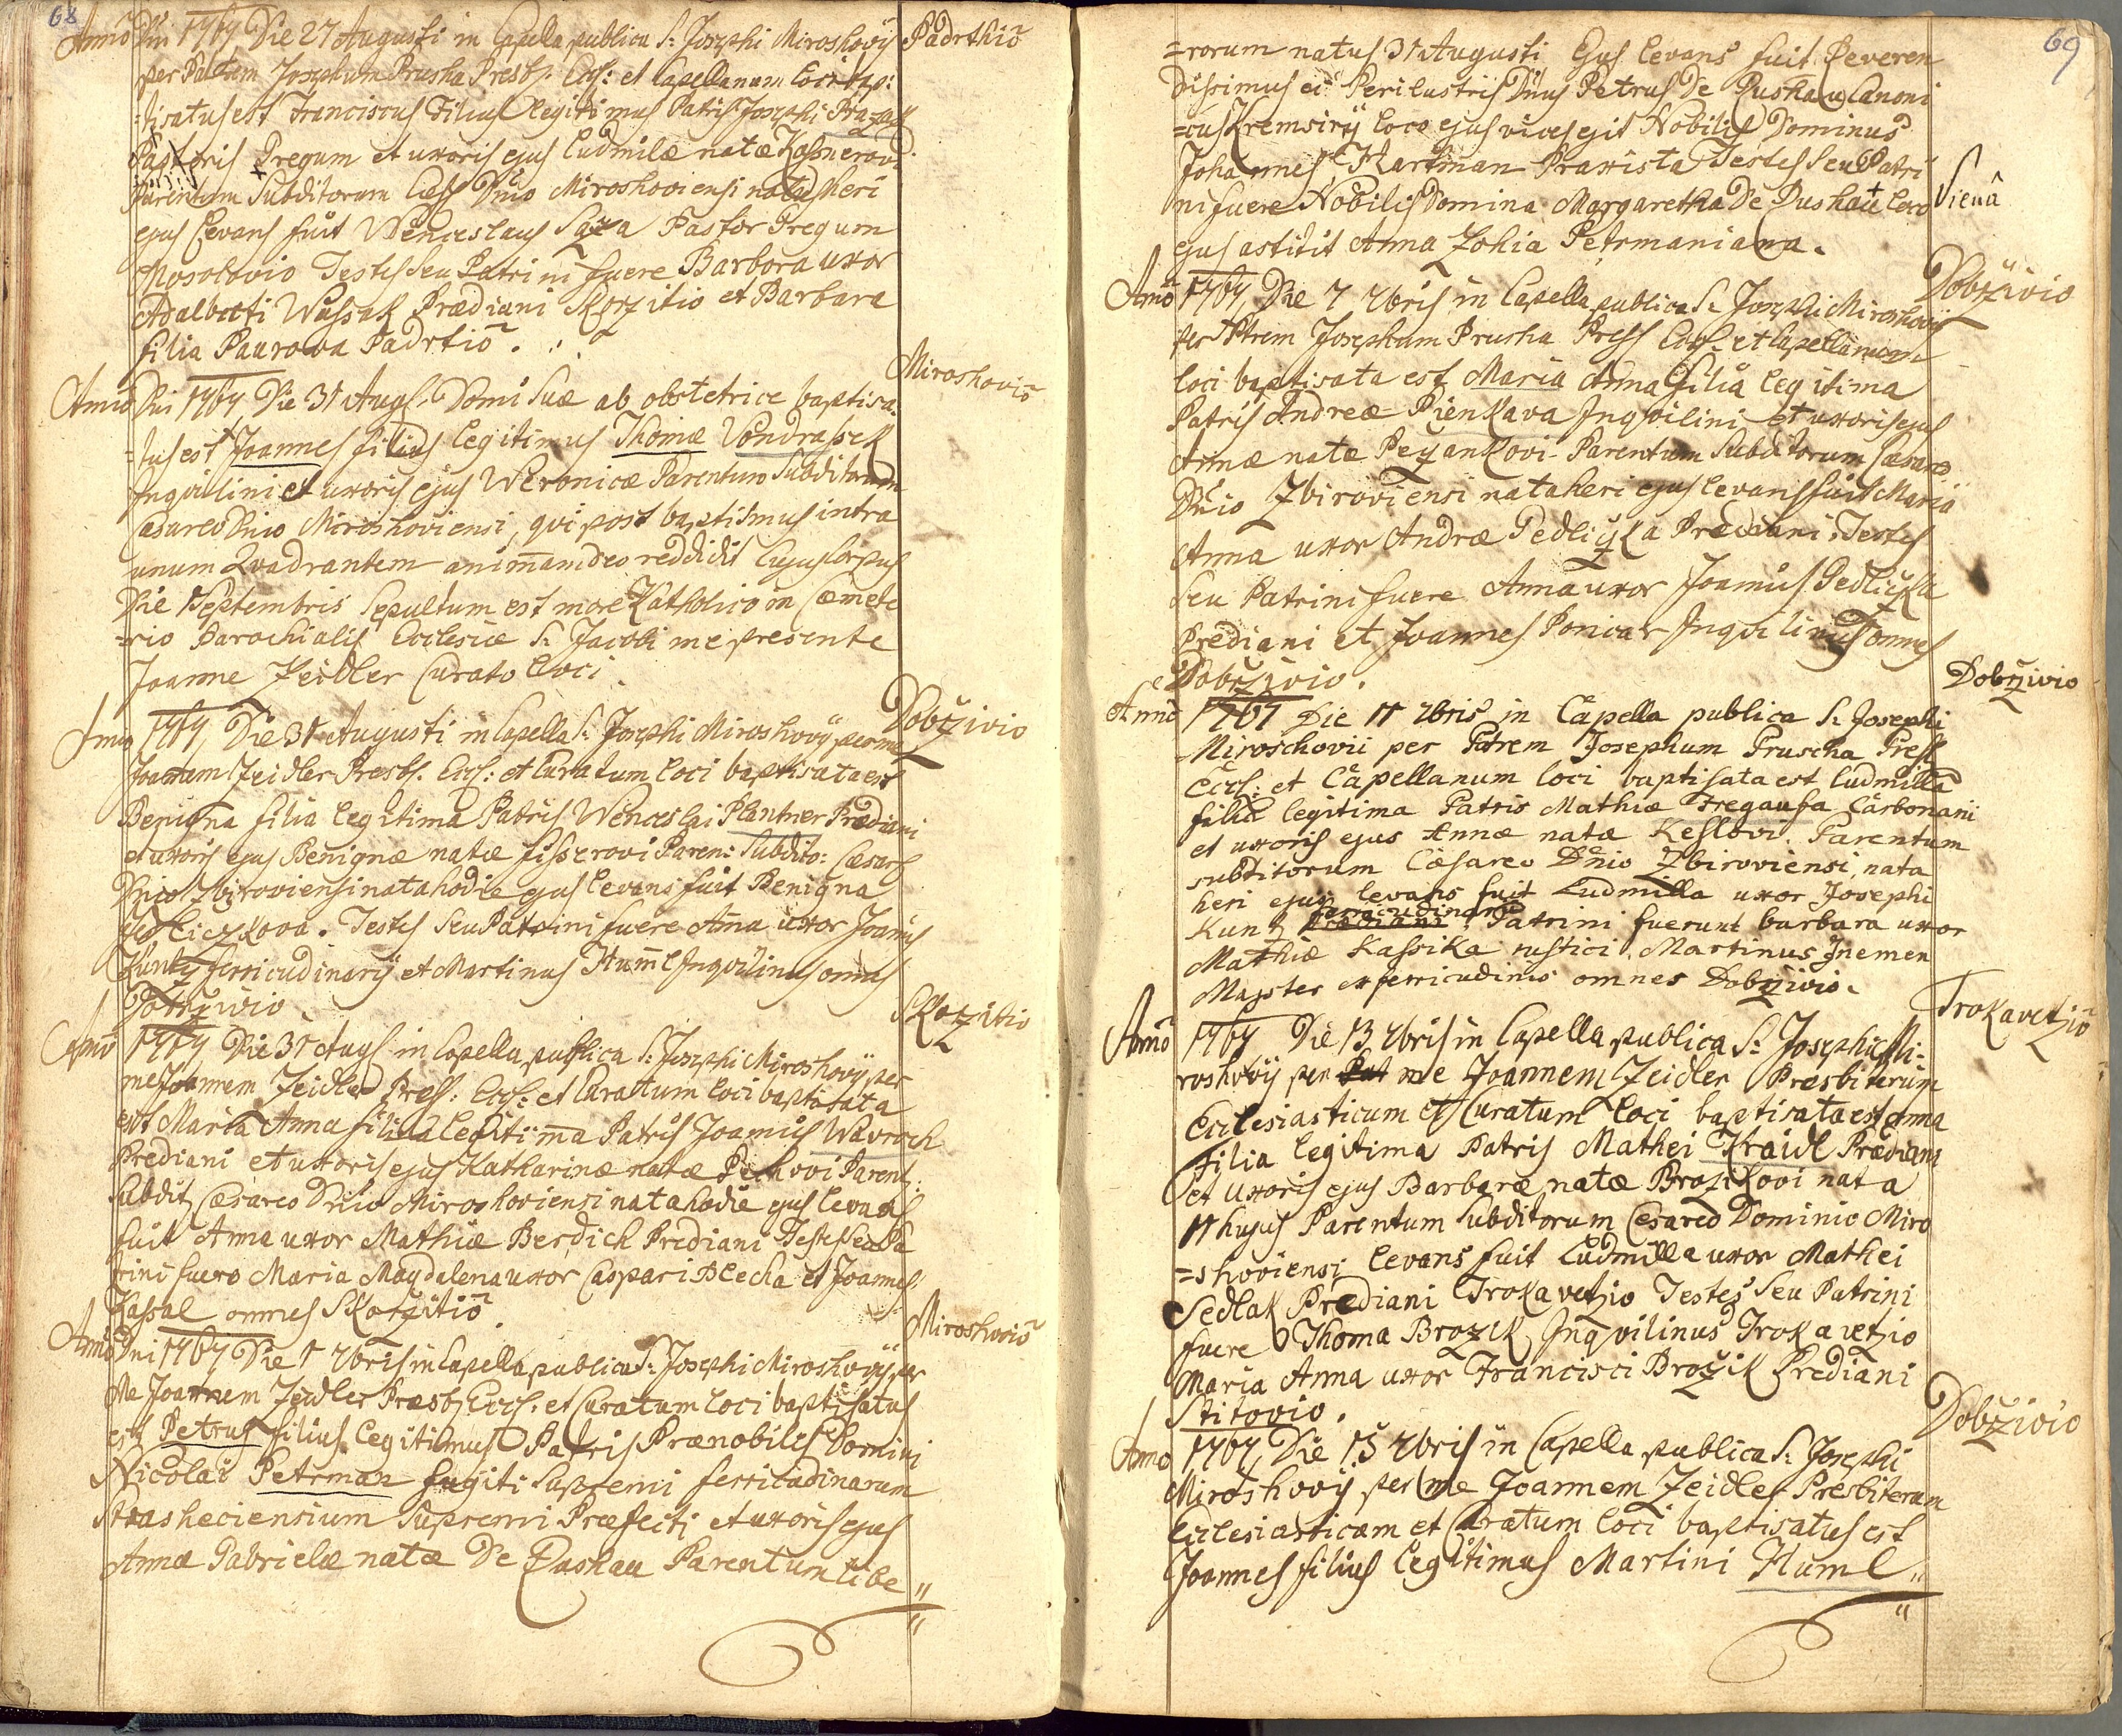 68
Anno Dni 1767 Die 27 Augusti in Capella publica S: Josephi Miroshovÿ Padrthiō
per Patrem Josephum Prusha Presb. Eccl: et Capellanum loci bap:
=tisatus est Franciscus Filius legitimus Patris Josephi
Pastoris Gregum et uxoris ejus Ludmilæ natæ
Parentum Subditorum Cæs Dnio Miroshoviensi natus heri
ejus Levans fuit Wenceslaus Saza Pastor Gregum
Testes Seu Patrini fuere Barbora uxor
Adalberti Wussak Prædiani Skorzitio et Barbara
filia Paurowa Padrtiō.
Miroshoviō
Anno Dni 1767 Die 31 Augs. Domi Suæ ab obstetrice baptisa:
=tus est Joannes filius legitimus Thomæ Vondrassek
Inqvilini et uxoris ejus Weronicæ Parentum Subditorum
Cæsareo Dnio Miroshoviensi, qvi post baptismus intra
unum Qvadrantem animam deo reddidit Cujus Corpus
Die 1 Septembris Sepultum est more Katholico in Cæmete
=rio Parochialis Ecclesiæ S: Jacobi me præsente
Joanne Zeidler Curato Loci.
Dobrzivio
Anno 1767 Die 31 Augusti in Capella S: Josephi Miroshovÿ per me
Joannem Zeidler Presb. Eccl: et Curatum loci baptisata est
Benigna filia legitima Patris Wenceslai Plantner Prædiani
et uxoris ejus Benignæ natæ fisserovi Paren: Subdito: Cæsar
Dnio Zbiroviensi nata hodie ejus levans fuit Benigna
Jedliczkova. Testes Seu Patrini fuere Anna uxor Joannis
Kuntz ferricudinarÿ et Martinus Huml Inqvilinus omnes
Dobrzivio.
Skorzitio
Anno 1767 Die 31 Augs in Capella publica S: Josephi Miroshovÿ per
me Joannem Zeidler Presb: Eccl: et Curatum loci baptisata
est Maria Anna filia legitima Patris Joannis Wavroch
Prediani et uxoris ejus Katharinæ natæ Pechovi Parent:
Subdit Cæsareo Dnio Miroshoviensi nata hodie ejus levans
fuit Anna uxor Mathiæ Berdich Prediani Testes Seu Pa
trini fuere Maria Magdalena uxor Caspari Blecha et Joannes
Kassal omnes Skorzitiō.
Miroshoviō
Anno Dni 1767 Die 1 7bris in Capella publica S: Josephi Miroshovÿ per
Me Joannem Zeidler Præsb Eccl: et Curatum loci baptisatus
est Petrus filius legitimus Patris Prænobiles Domini
Nicolai Petrman fugiti Supremi ferricudinarum
Strasheciensium Supremi Præfecti et uxoris ejus
Annæ Gabrielæ natæ De Puskau Parentum libe
69
=rorum natus 31 Augusti Ejus levans fuit Reveren
dissimus ei Perilustris Dnus Petrus De Puskau Canoni
=cus Kremsirÿ loco ejus vices egit Nobilis Dominus
Johannes Hartman Praxista Testes Seu Patri
ni fuere Nobilis Domina Margaretha De Pushau loco
Viena
ejus astitit Anna Zohia Petrmaniana.
Dobrzivio
Anno 1767 Die 7 7bris in Capella publica S: Josephi Miroshovÿ
per Ptrem Josephum Prusha Presb Eccl: et Capellanum
loci baptisata est Maria Anna Filia legitima
Patris Andreæ Pienkava Inqvilini et uxoris ejus
Annæ natæ Peyankovi Parentum Subditorum Cæsareo
Dnio Zbiroviensi nata heri ejus levans fuit Maria
Anna uxor Andræ Gedliczka Prædiani: Testes
Seu Patrini fuere Anna uxor Joannis Gedliczka
Prediani et Joannes Ponicar Inqvilinus omnes
e Dobrzivio.
Dobrzivio
Anno 1767 Die 11 7bris in Capella publica S: Josephi
Miroschovii per Patrem Josephum Pruscha Presb
Eccl: et Capellanum loci baptisata est Ludmilla
filia legitima Patris Mathiæ Tregausa Carbonarii
et uxoris ejus Annæ natæ Keslovi Parentum
subditorum Cæsareo Dnio Zbiroviensi, nata
heri ejus levans fuit Ludmilla uxor Josephi
ferricudinarii
Kuntz Prædiani Patrini fuerunt barbara uxor
Mathiæ Kassika rustici, Martinus Jnemen
Magster ferricudinis omnes Dobrzivio.
Trokavetziō
Anno 1767 Die 13 7bris in Capella publica S: Josephi Mi=
roshovÿ per Pat me Joannem Zeidler Præsbiterum
Ecclesiasticum et Curatum loci baptisata est Anna
Filia legitima Patris Mathei Kraidl Prædiani
et Uxoris ejus Barbaræ natæ Brozikovi nata
11 hujus Parentum Subditorum Cesareo Dominio Miro
=shoviensi levans fuit Ludmilla uxor Mathei
Sedlak Prædiani Trokavetzio Testes Seu Patrini
fuere Thoma Brozik Inqvilinus Trokavetzio
Maria Anna uxor Francisci Brozik Prediani
Stitovio.
Dobrzivio
Anno 1767 Die 15 7bris in Capella publica S: Josephi
Miroshovÿ per me Joannem Zeidler Presbiterum
Ecclesiasticum et Curatum loci baptisatus est
Joannes filius legitimus Martini Huml